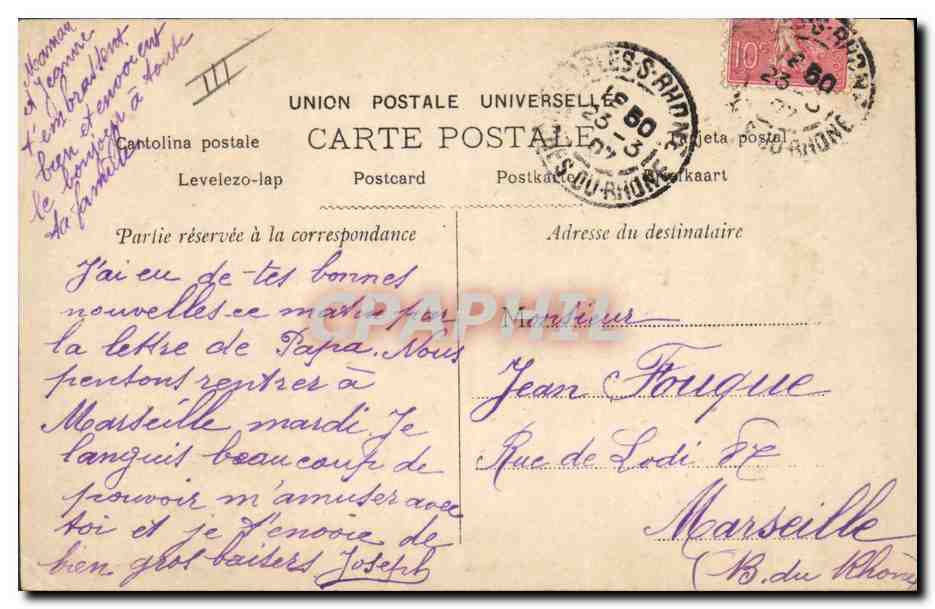 Maman
et Jeanne
t'embrassent
bien et envoient
le bonjour à toute
ta famille
III
UNION POSTALE UNIVERSELLE
CARTE POSTALE
Cartolina postale
Tarjeta postal
Levelezo-lap
Postcard
Postkarte
Briefkaart
10c
ARLES-S-RHONE
18 50
23-3
07
BCHES-DU-RHONE
Partie réservée à la correspondance
Adresse du destinataire
J'ai eu de tes bonnes
nouvelles ce matin par
la lettre de Papa. Nous
pensons rentrer à
Marseille mardi. Je
languis beaucoup de
pouvoir m'amuser avec
toi et je t'envoie de
bien gros baisers Joseph
CPAPHIL
Monsieur
Jean Fouque
Rue de Lodi 87
Marseille
(B. du Rhône